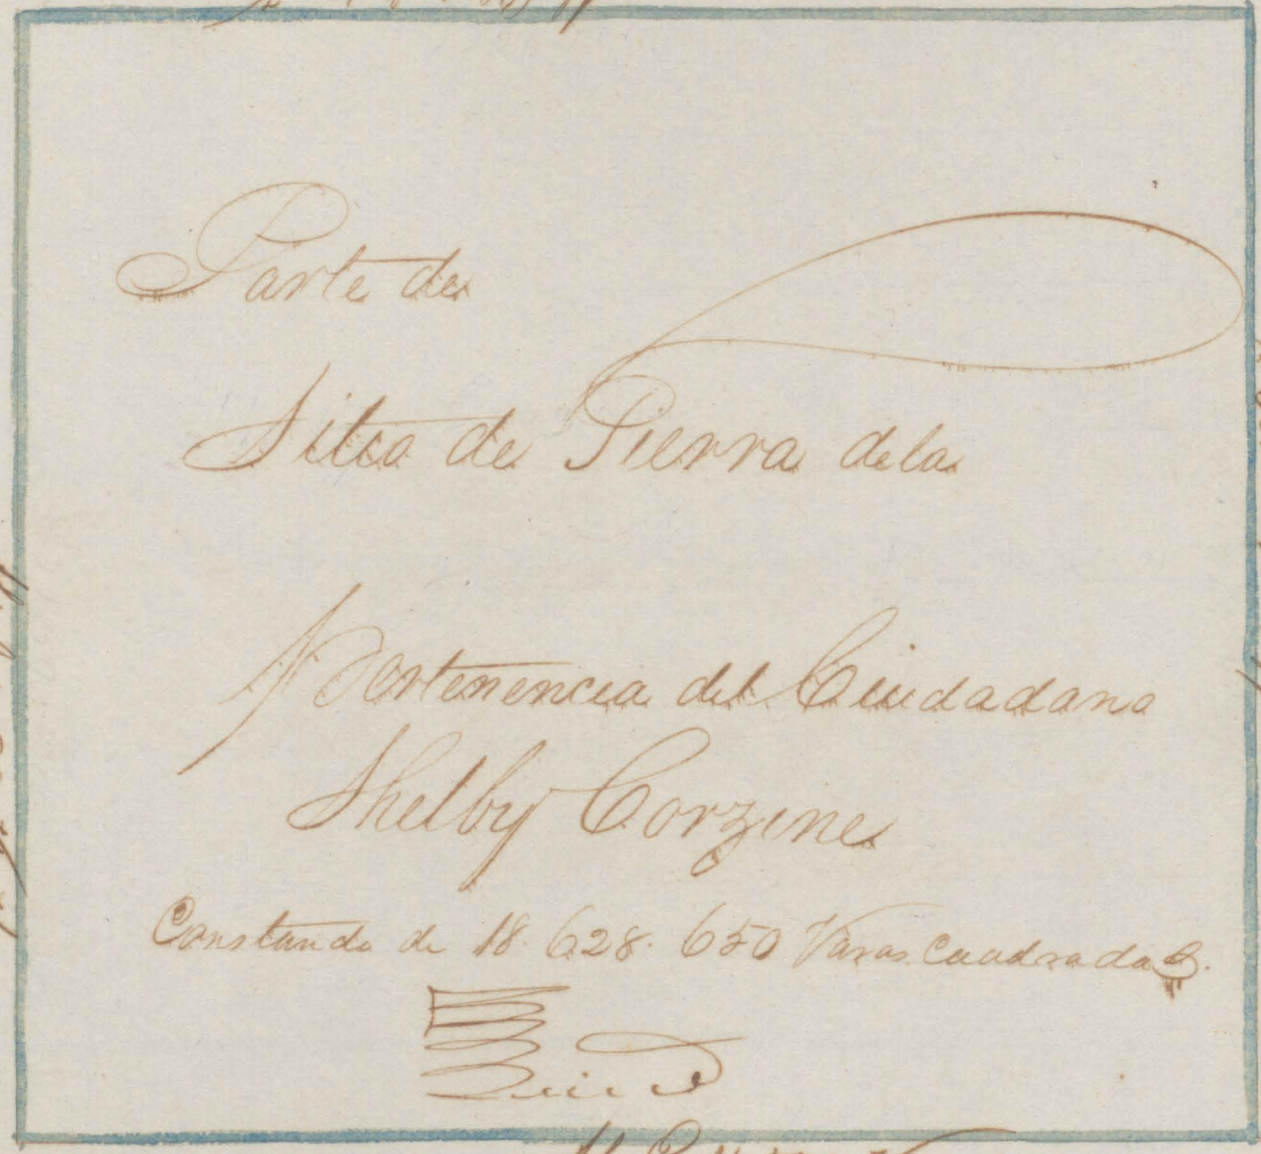 Parte de
Sitio de Tierra de la
Pertenencia del Ciudadano
Shelby Corzine
Constando de 18.628.650 Varas Cuadradas.